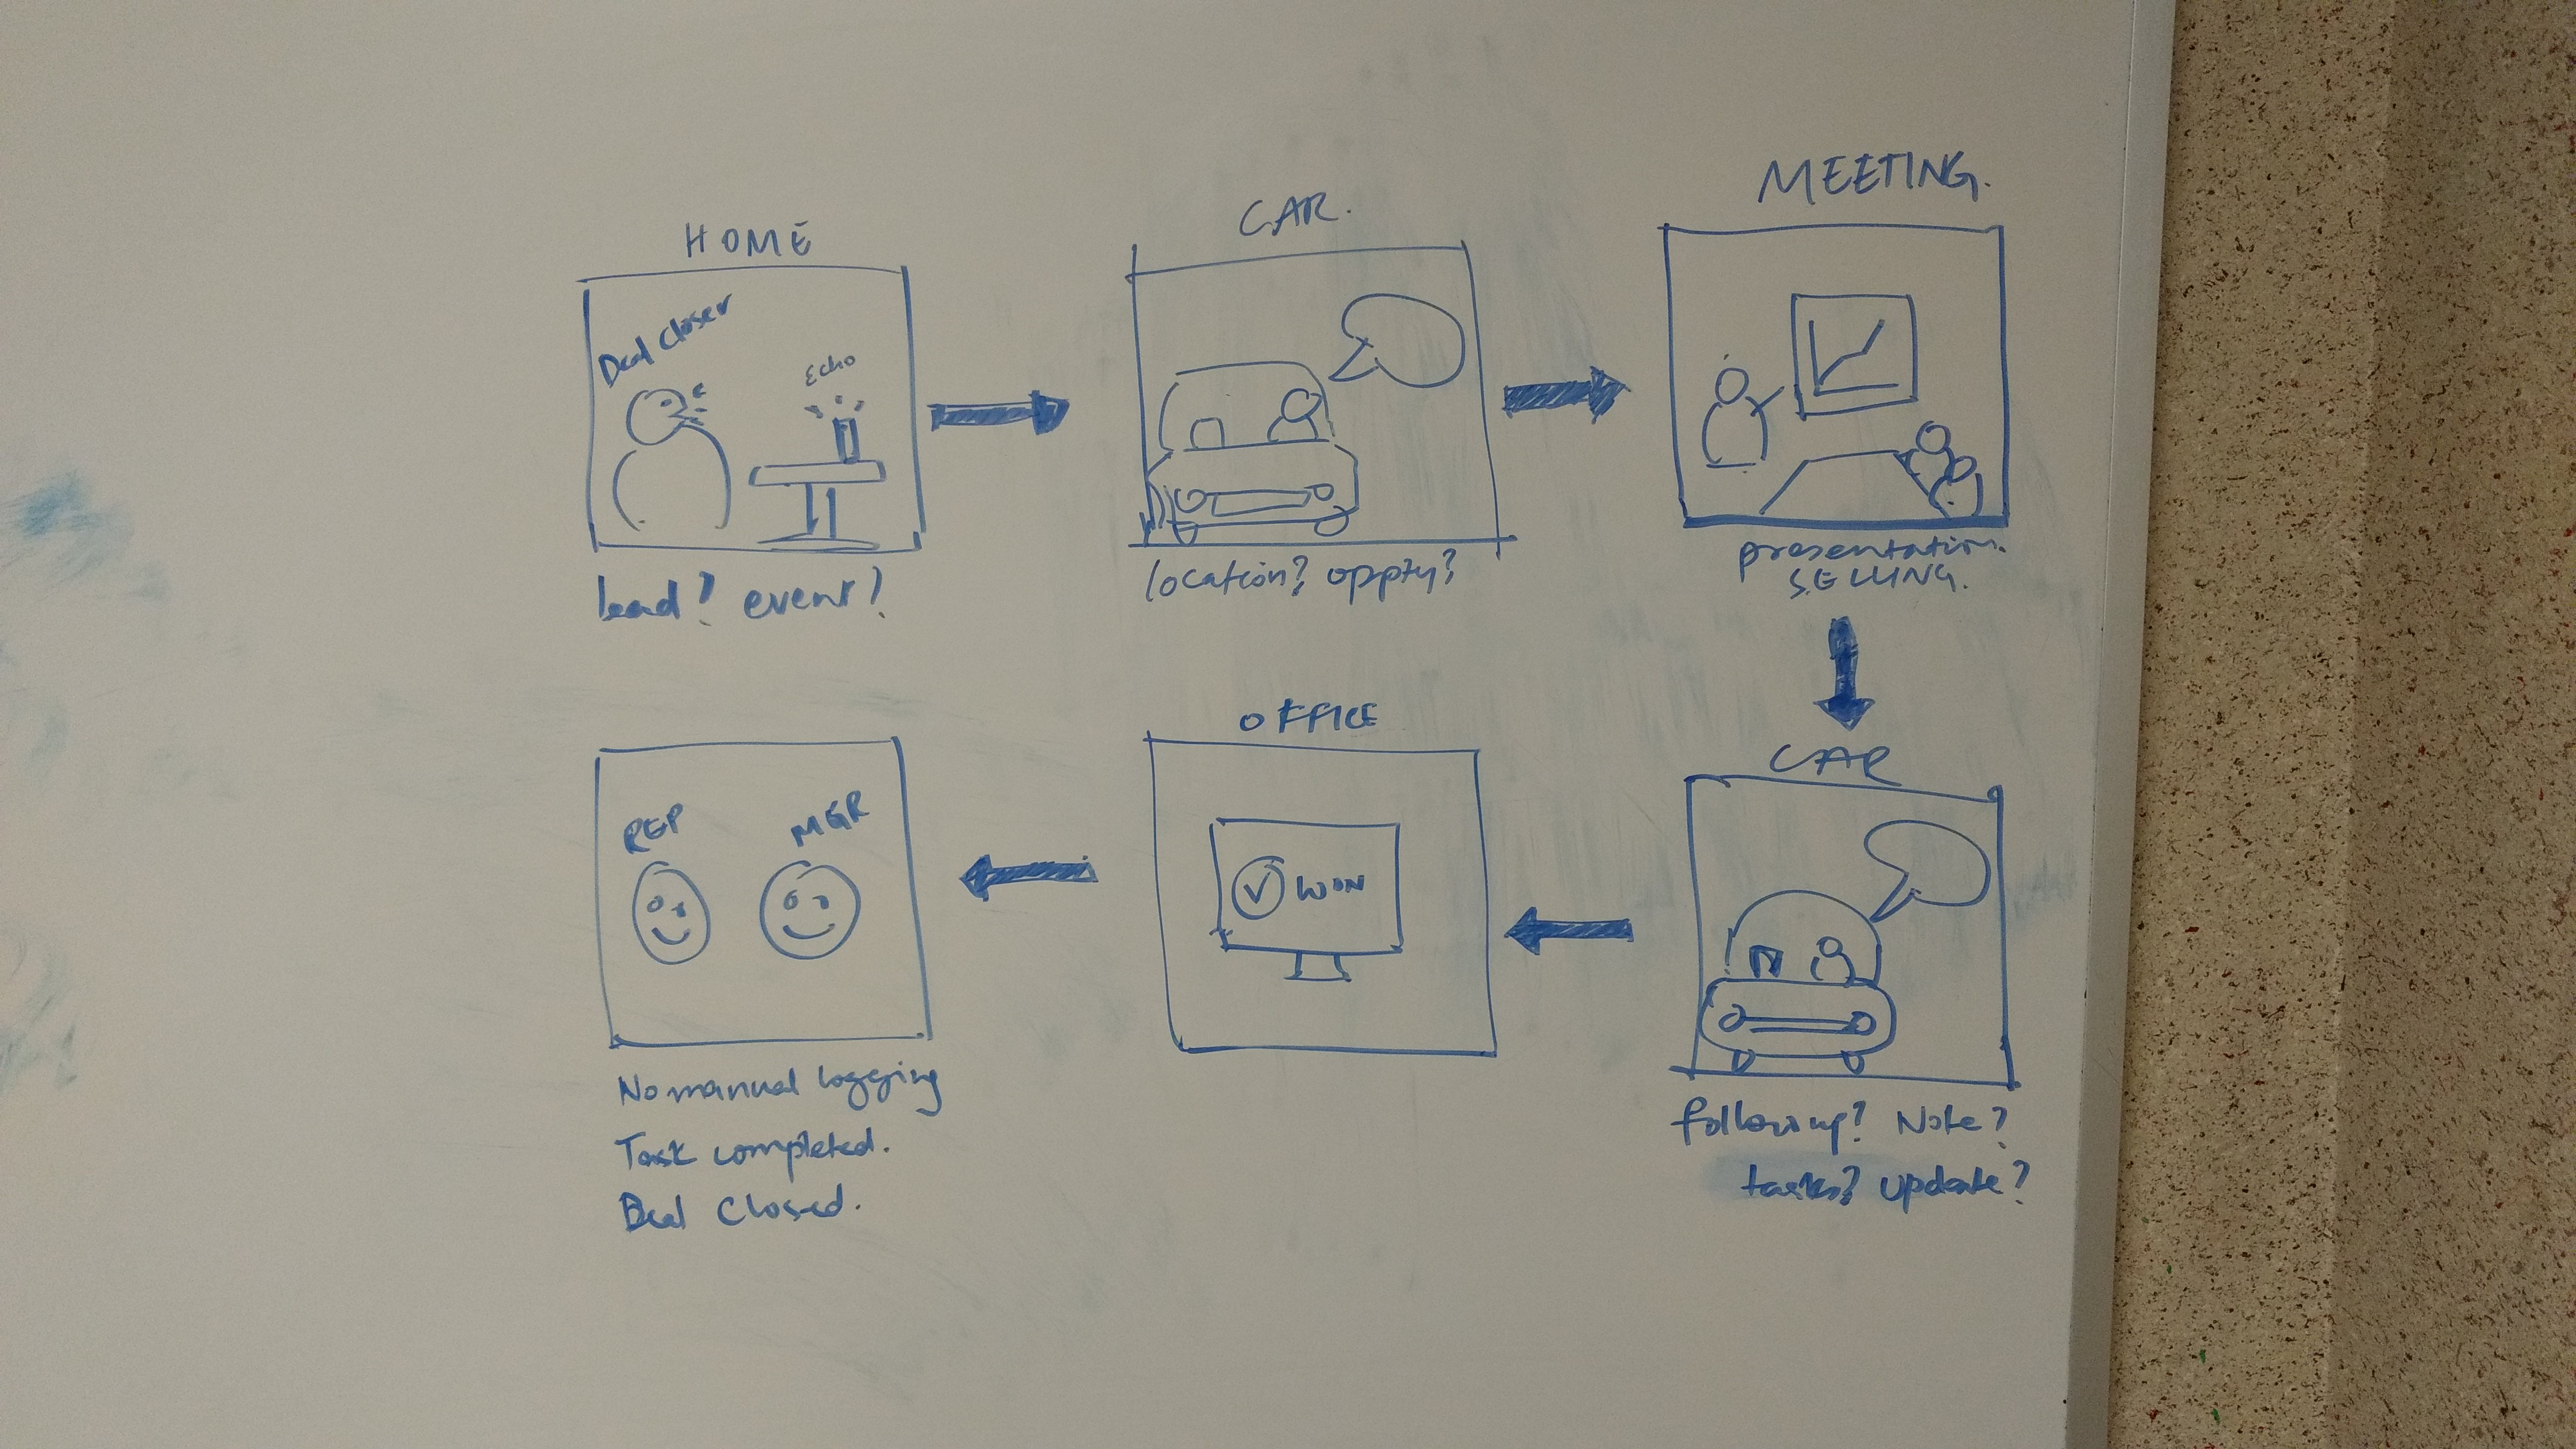 HOME
Deal Closer
Echo
lead? event?
CAR.
location? oppty?
MEETING.
presentation.
SELLING.
CAR
following? Note?
tasks? update?
OFFICE
WON
REP MGR
No manual logging
Task completed.
Deal Closed.